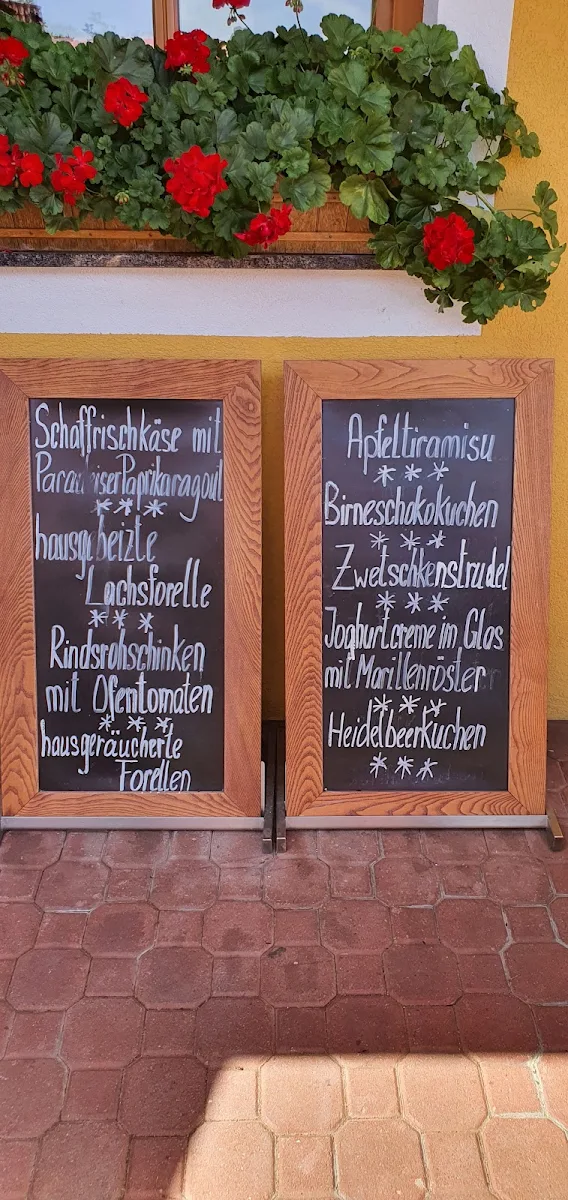 Schaffrischkäse mit
ParadeiserPaprikaragout
***
hausgebeizte
Lachsforelle
***
Rindsrohschinken
mit Ofentomaten
***
hausgeräucherte
Forellen
Apfeltiramisu
***
Birneschokokuchen
***
Zwetschkenstrudel
***
Joghurtcreme im Glas
mit Marillenröster
***
Heidelbeerkuchen
***